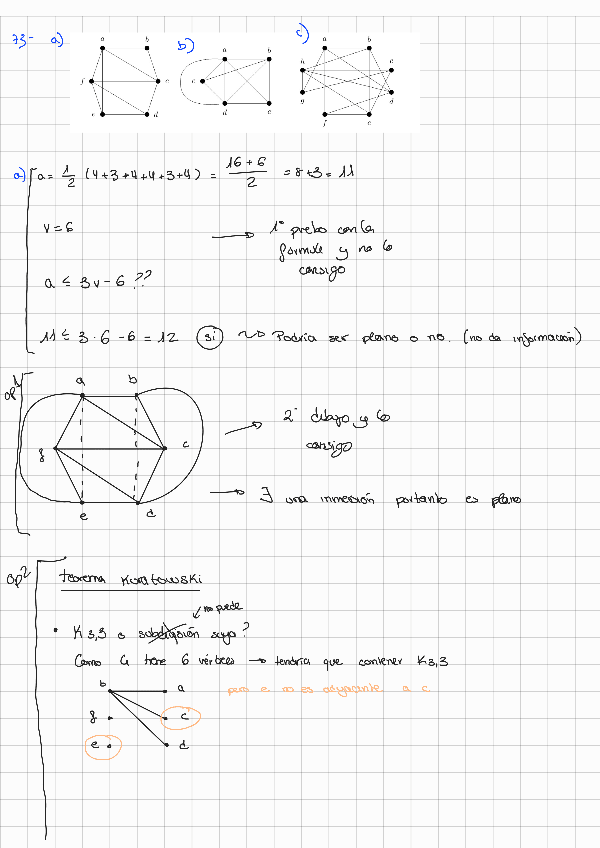 73- a) b) c)
a b
f c
e d
a b
c
d e
a b
h c
g d
f e
a) a = 1/2 (4+3+4+4+3+4) = 16+6/2 = 8+3 = 11
v = 6 → 1º pruebo con la
formula y no lo
consigo
a ≤ 3v - 6 ??
11 ≤ 3 · 6 - 6 = 12 (si) ~> Podría ser plano o no. (no da información)
op1
a b
f c
e d
2º dibujo y lo
consigo
→ ∃ una inmersión portanto es plano
op2
teorema Kuratowski
no puede
• K3,3 o subdivisión suya?
Como G tiene 6 vértices → tendría que contener K3,3
b a pero e no es adyacente a c
f c
e d